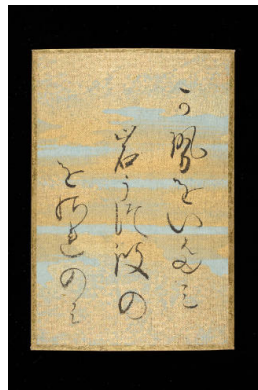 か勢をい多み
岩うつ波の
をのれのみ